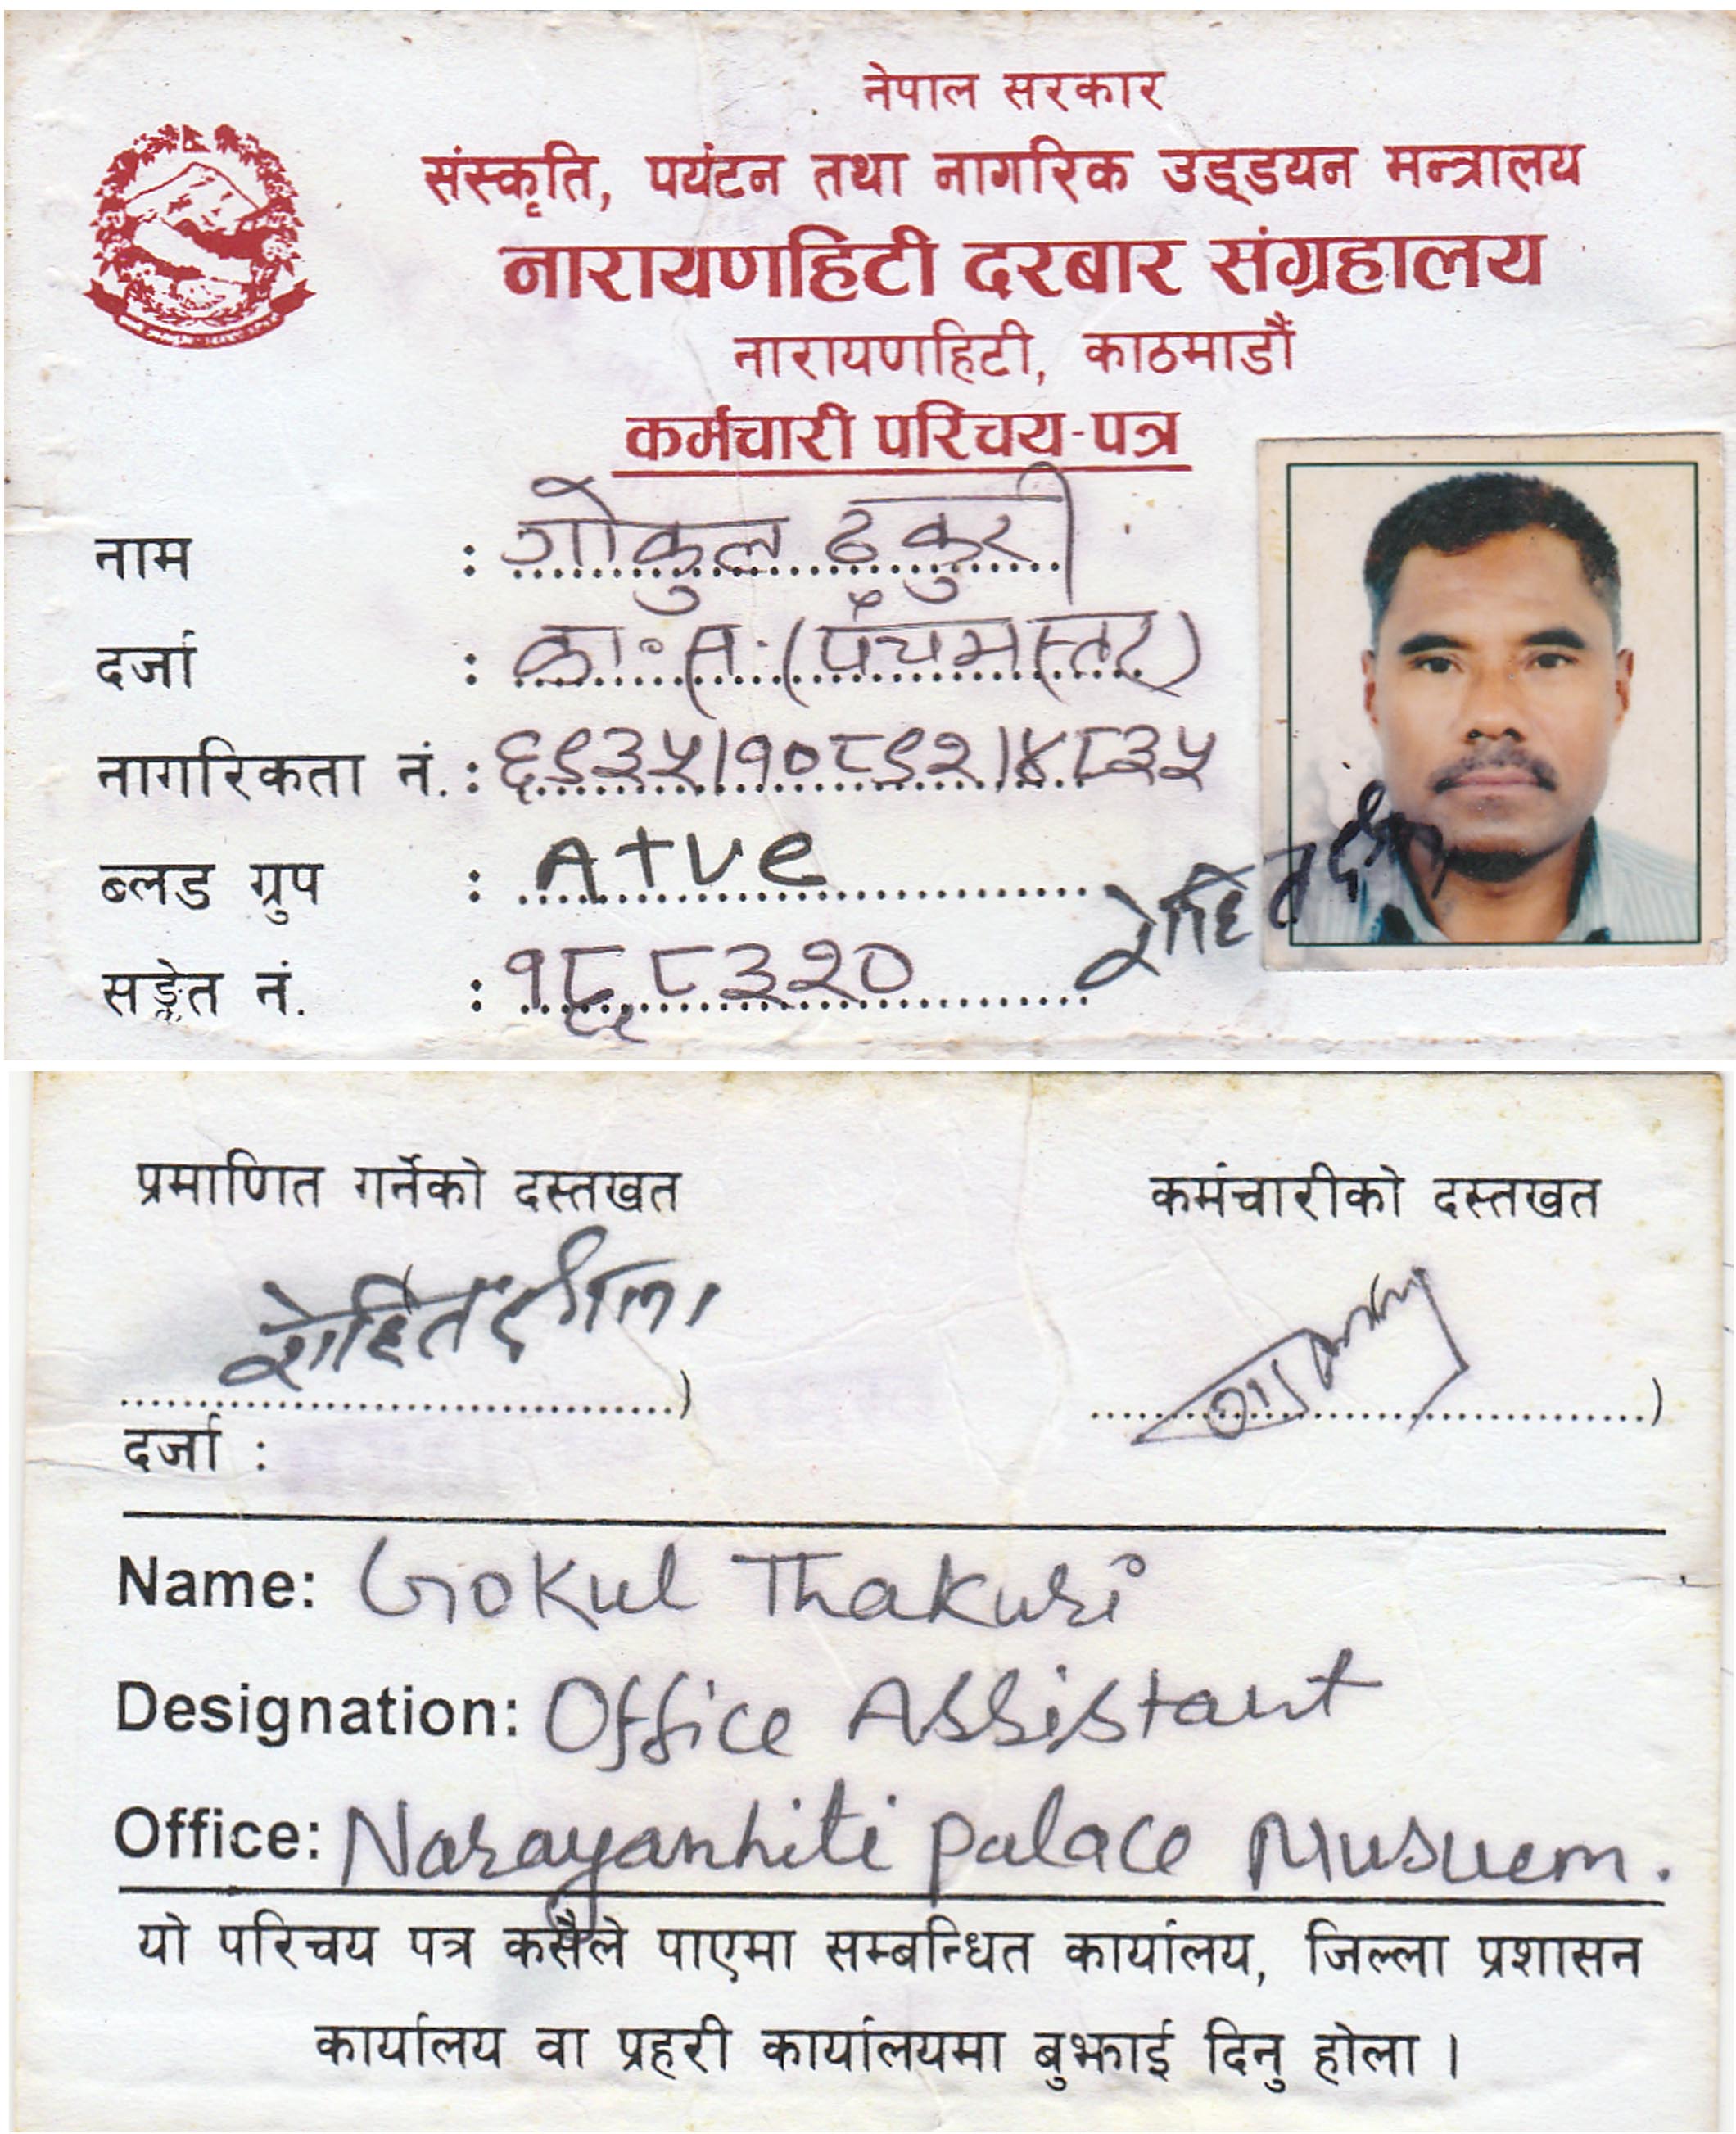 नेपाल सरकार
संस्कृति, पर्यटन तथा नागरिक उड्डयन मन्त्रालय
नारायणहिटी दरबार संग्रहालय
नारायणहिटी, काठमाडौं
कर्मचारी परिचय-पत्र
नाम : गोकुल ठकुरी
दर्जा : का.स. (पंचमस्तर)
नागरिकता नं. : ६९३५।१०८९२।४८३५
ब्लड ग्रुप : A+ve
सङ्केत नं. : १८८३२०
रोहित
प्रमाणित गर्नेको दस्तखत
कर्मचारीको दस्तखत
रोहित
दर्जा :
Name: Gokul Thakuri
Designation: Office Assistant
Office: Narayanhiti palace Musuem.
यो परिचय पत्र कसैले पाएमा सम्बन्धित कार्यालय, जिल्ला प्रशासन
कार्यालय वा प्रहरी कार्यालयमा बुझाई दिनु होला ।